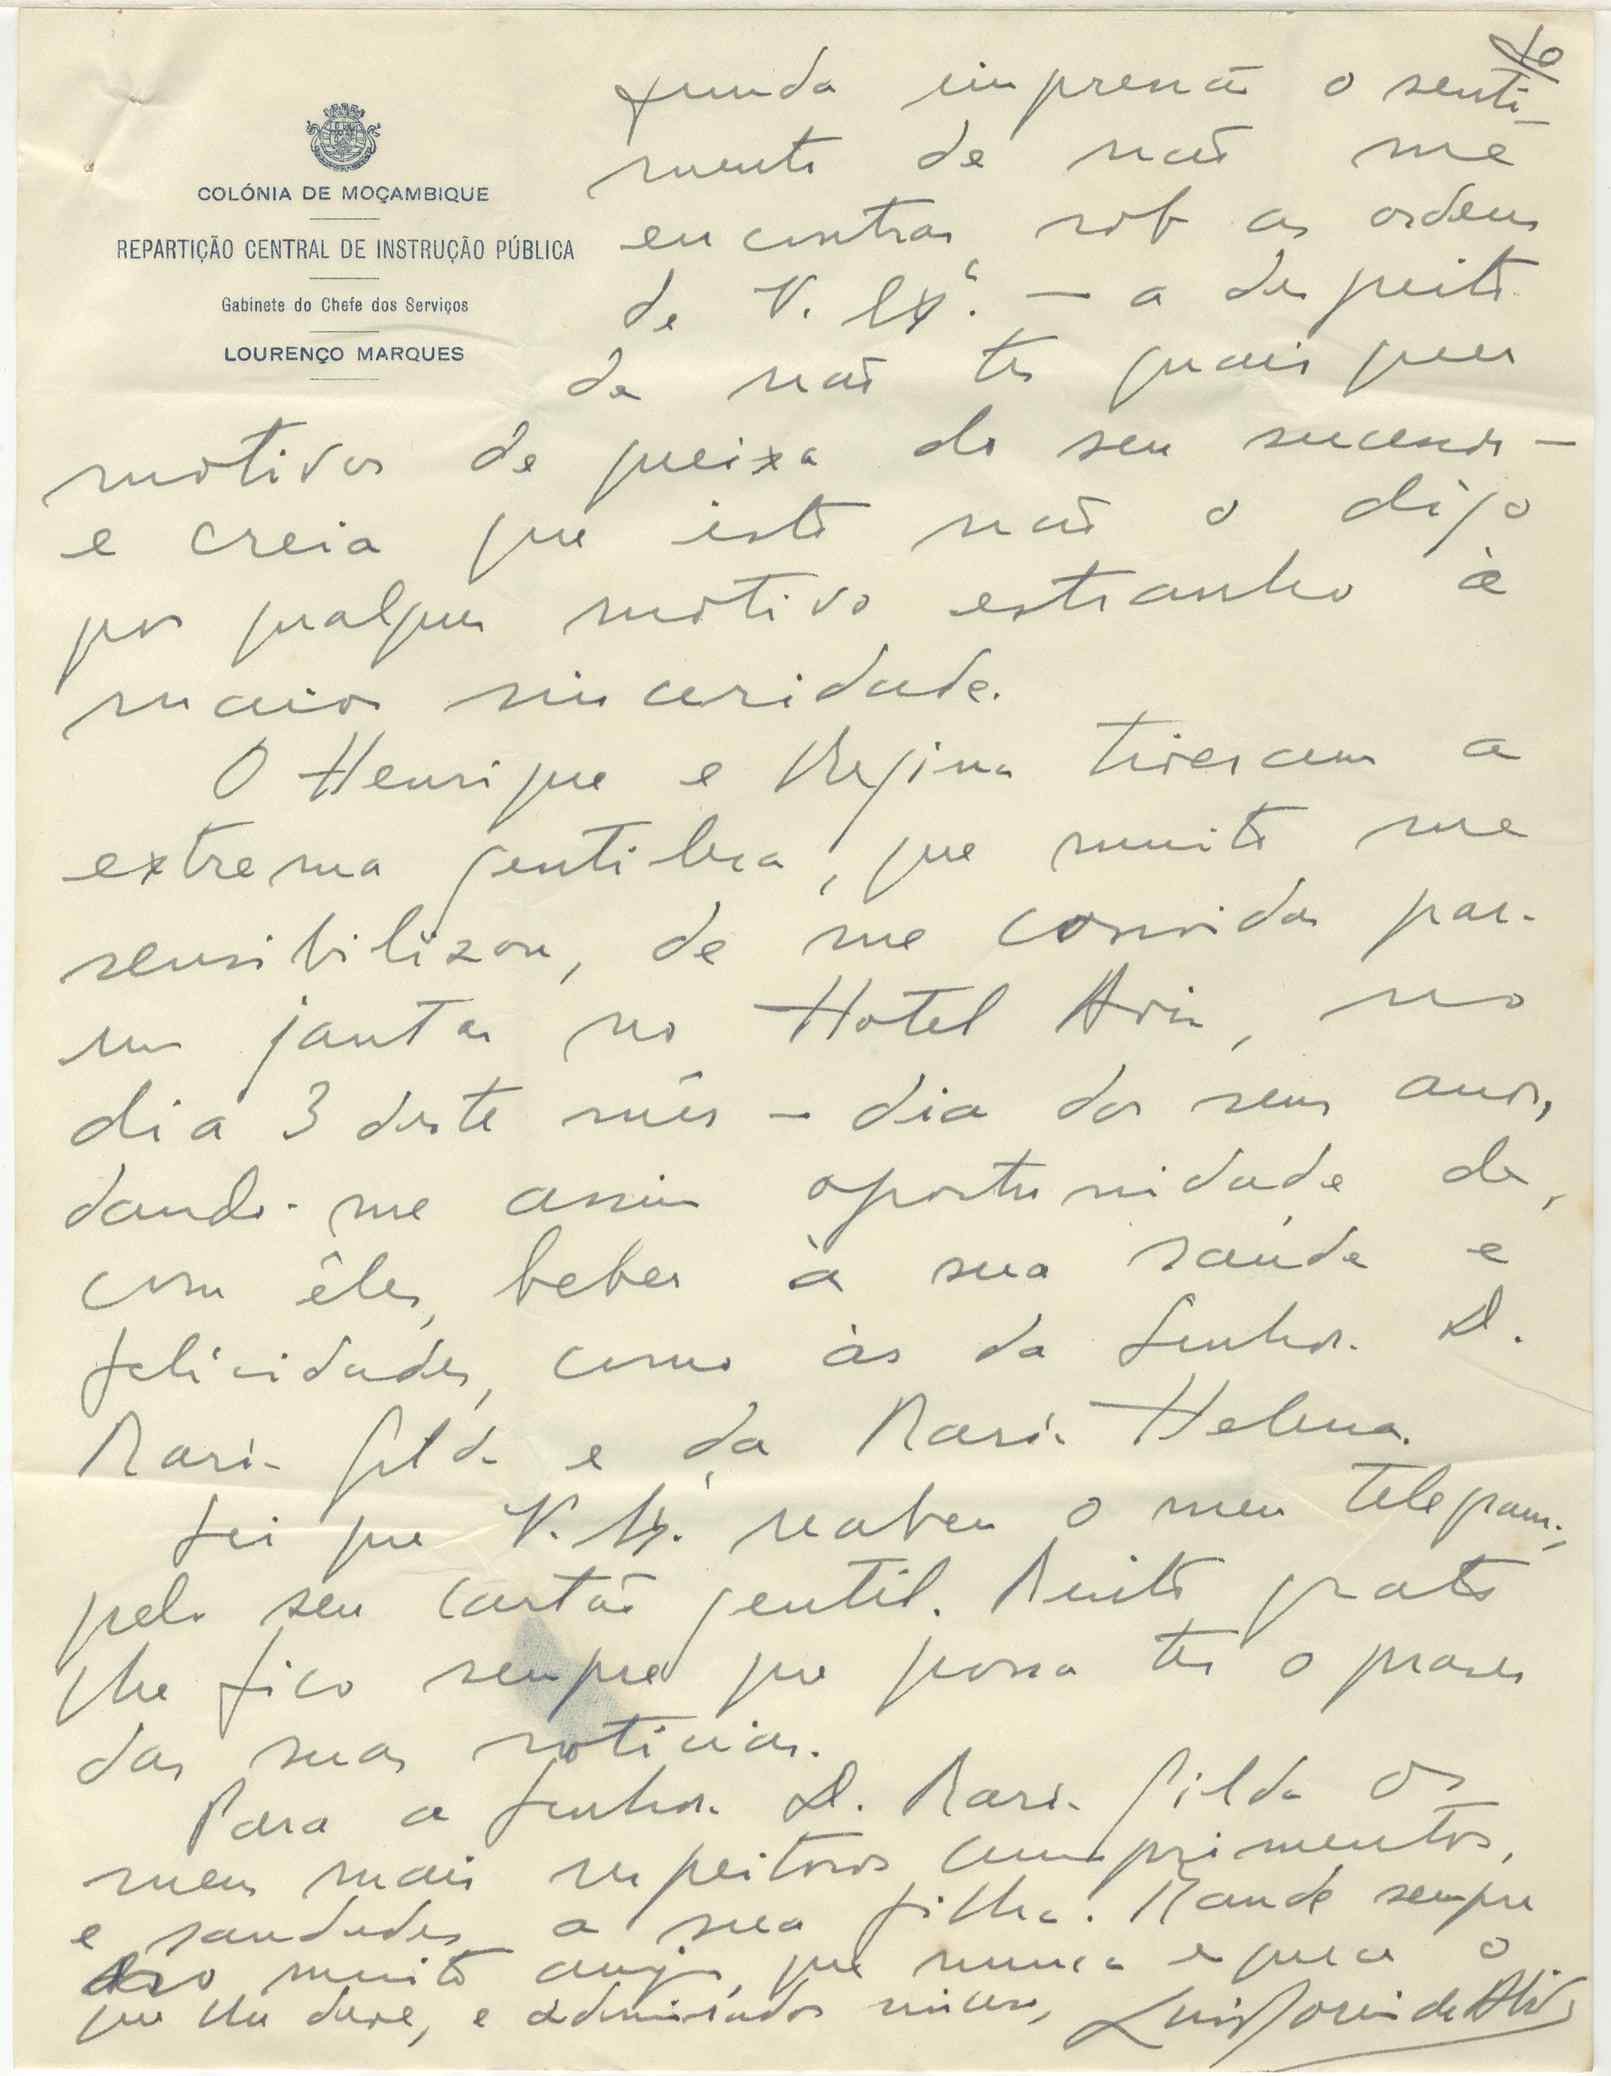 COLÓNIA DE MOÇAMBIQUE
REPARTIÇÃO CENTRAL DE INSTRUÇÃO PÚBLICA
Gabinete do Chefe dos Serviços
LOURENÇO MARQUES
funda impressão o senti-
mento de não me
encontrar sob as ordens
de V. Exª. — a despeito
de não ter quaisquer
motivos de queixa do seu sucessor —
e creia que isto não o digo
por qualquer motivo estranho à
maior sinceridade.
O Henrique e Regina tiveram a
extrema gentileza, que muito me
sensibilizou, de me convidar para
um jantar no Hotel Aviz, no
dia 3 deste mês — dia dos seus anos,
dando-me assim oportunidade de,
com êles, beber à sua saúde e
felicidades, como às da Senhora D.
Maria Gilda e da Maria Helena.
Sei que V. Ex. recebeu o meu telegrama,
pelo seu cartão gentil. Muito grato
lhe fico sempre que possa ter o prazer
das suas notícias.
Para a Senhora D. Maria Gilda os
meus mais respeitosos cumprimentos,
e saudades a sua filha. Mande sempre
muito amigo, que nunca esquece o
que lhe deve, e admirador sincero,